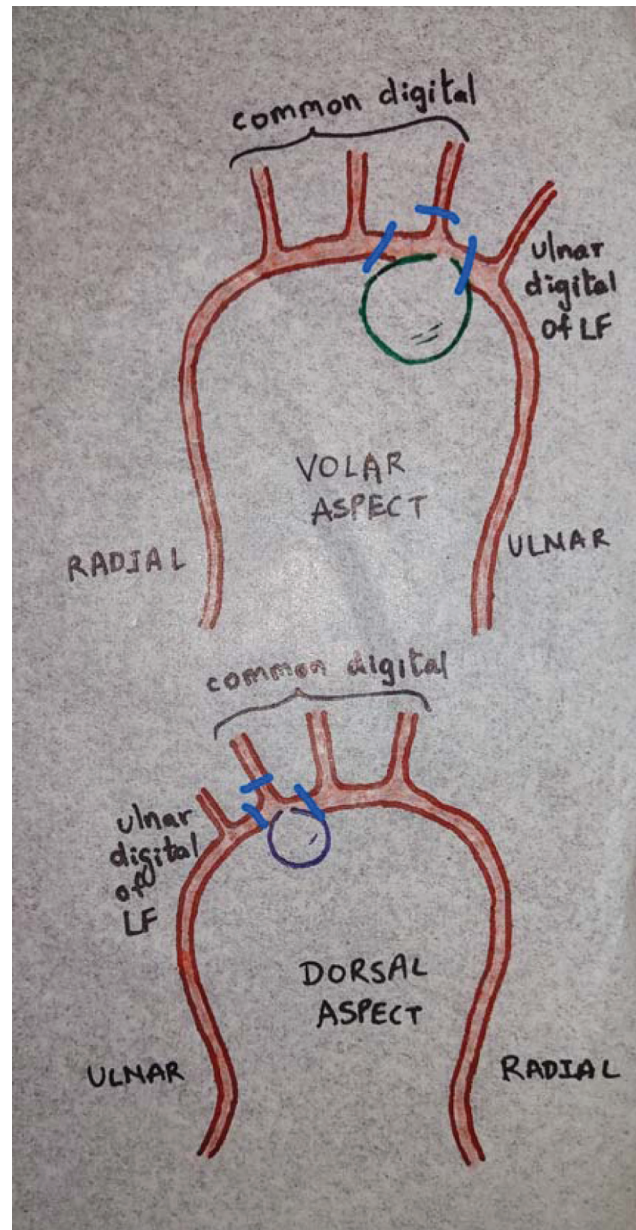 common digital
ulnar
digital
of LF
VOLAR
ASPECT
RADIAL
ULNAR
common digital
ulnar
digital
of
LF
DORSAL
ASPECT
ULNAR
RADIAL